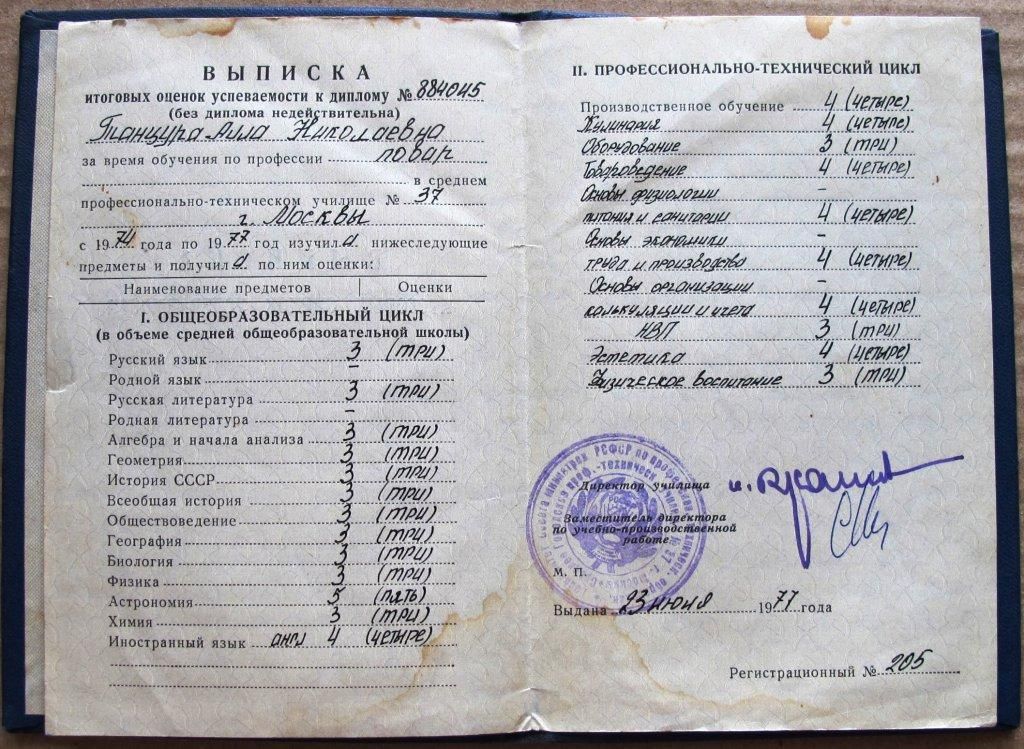 ВЫПИСКА
итоговых оценок успеваемости к диплому № 884045
(без диплома недействительна)
Танцура Алла Николаевна
за время обучения по профессии повар
в среднем
профессионально-техническом училище № 37
г. Москвы
с 1974 года по 1977 год изучила нижеследующие
предметы и получила по ним оценки:
Наименование предметов Оценки
I. ОБЩЕОБРАЗОВАТЕЛЬНЫЙ ЦИКЛ
(в объеме средней общеобразовательной школы)
Русский язык 3 (три)
Родной язык –
Русская литература 3 (три)
Родная литература –
Алгебра и начала анализа 3 (три)
Геометрия 3 (три)
История СССР 3 (три)
Всеобщая история 3 (три)
Обществоведение 3 (три)
География 3 (три)
Биология 3 (три)
Физика 3 (три)
Астрономия 5 (пять)
Химия 3 (три)
Иностранный язык англ 4 (четыре)
II. ПРОФЕССИОНАЛЬНО-ТЕХНИЧЕСКИЙ ЦИКЛ
Производственное обучение 4 (четыре)
Кулинария 4 (четыре)
Оборудование 3 (три)
Товароведение 4 (четыре)
Основы физиологии –
питания и санитарии 4 (четыре)
Основы экономики –
труда и производства 4 (четыре)
Основы организации –
калькуляции и учета 4 (четыре)
НВП 3 (три)
Эстетика 4 (четыре)
Физическое воспитание 3 (три)
Директор училища
Заместитель директора
по учебно-производственной
работе
М. П.
Выдана 23 июня 1977 года
Регистрационный № 205